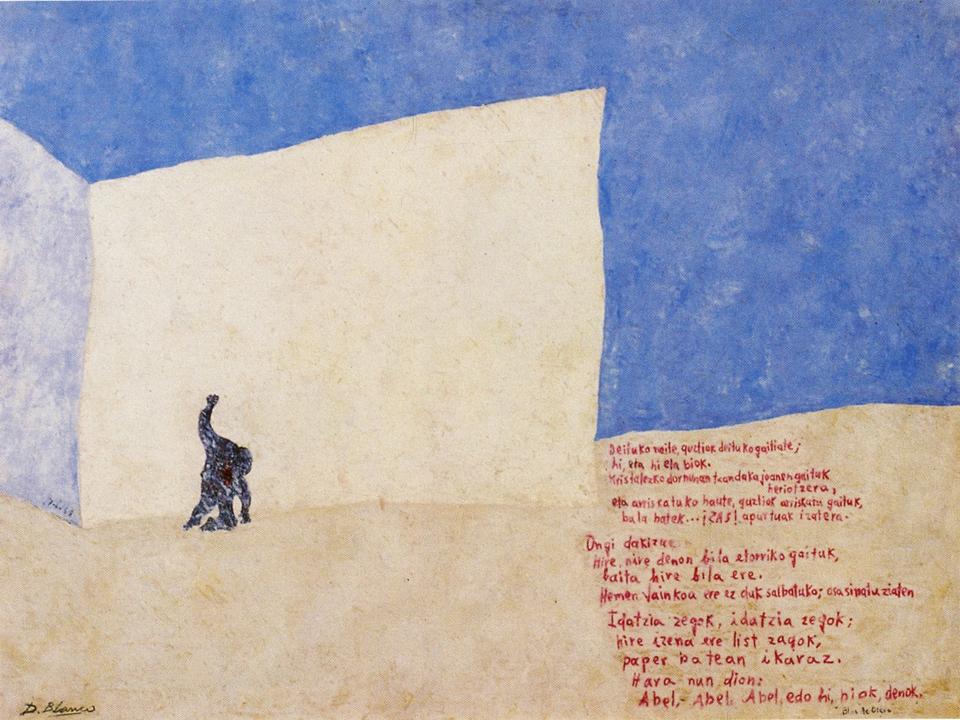 Deituko naite, guztiok deituko gaitiate;
hi, eta hi eta biok.
Kristalezko dorrunan txandaka joanen gaituk
heriotzera,
eta arriskatuko haute, guztiok arriskatu gaituk,
bala batek... ¡ZAS! apurtuak izatera.
Ongi dakizue
Hire, nire denon bila etorriko gaituk,
baita hire bila ere.
Hemen Jainkoa ere ez duk salbatuko; asasinatu ziaten
Idatzia zegok, idatzia zegok;
hire izena ere list zagok,
paper batean ikaraz.
Hara nun dion:
Abel, Abel, Abel, edo hi, hiok, denok.
Blas de Otero
D. Blanco